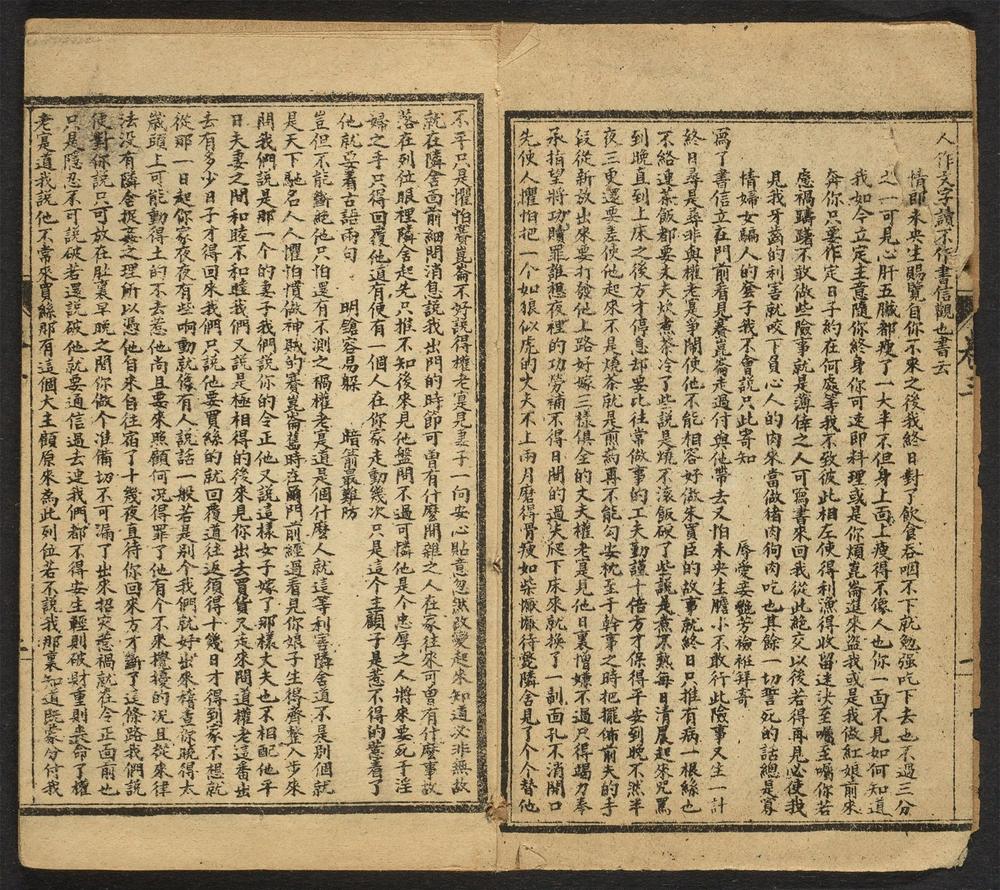 人作文字讀不作書信觀也書云
情郎未央生賜覽自你不來之後我終日對了飲食吞咽不下就勉强吃下去也不過三分
之一可見心肝五臟都瘦了一大半不但身上面上瘦得不像人也你一面不見如何知道
我如今立定主意隨你終身你可速即料理或是你煩崑崙進來盜我或是我做紅娘前來
奔你只要作定日子約在何處等我不致彼此相左使得利漁得收留速決至囑至囑你若
慮禍躊躇不敢做些險事就是薄倖之人可寫書來回我從此絶交以後若得再見必使我
見我牙齒的利害就咬下負心人的肉來當做猪肉狗肉吃也其餘一切誓死的話總是寡
情婦女騙人的套子我不會說只此寄知
辱愛妾艷芳襝袵拜寄
寫了書信立在門前看見賽崑崙走過付與他帶去又怕未央生膽小不敢行此險事又生一計
終日尋是尋非與權老實爭鬧使他不能相容好做朱買臣的故事就終日只推有病一根絲也
不絡連茶飯都要丈夫炊煮茶冷了些說是燒不滾飯硬了些說是煮不熟每日清晨起來咒罵
到晚直到上床之後方才得停息却要比往常做事的工夫勤謹十倍方才保得平安到晚不然半
夜三更還要差使他起來不是燒茶就是煎葯再不能勾安枕至于幹事之時把擺佈前夫的手
段從新放出來要打發他上路好嫁三樣俱全的丈夫權老實見他日裏憎嫌不過只得竭力奉
承指望將功贖罪誰想夜裡的功勞補不得日間的過失爬下床來就換了一副面孔不消開口
先使人懼怕把一个如狼似虎的丈夫不上兩月磨得骨瘦如柴懨懨待斃隣舍見了个个替他
不平只是懼怕賽崑崙不好說得權老實見妻子一向安心貼意忽然改變起來知道必非無故
就在隣舍面前細問消息說我出門的時節可曾有什麼閒雜之人在家往來可曾有什麼事故
落在列位眼裡隣舍起先只推不知後來見他盤問不過可憐他是个忠厚之人將來要死于淫
婦之手只得回覆他道有便有一個人在你家走動幾次只是這个主顧子是惹不得的惹着了
他就要着古語兩句
明鎗容易躲 暗箭最難防
豈但不能斷絕他只怕還有不測之禍權老實道是個什麼人就這等利害隣舍道不是別個就
是天下馳名人人懼怕慣做神賊的賽崑崙舊時在門前經過看見你娘子生得齊整入步來
問我們說是那一个的妻子我們說你的令正他又說這樣女子嫁了那樣丈夫也不相配他平
日夫妻之間和睦不和睦我們又說是極相得的後來見你出去買貨又走來問道權老這番出
去有多少日子才得回來我們只說他要買絲的就回覆道往返須得十幾日才得到家不想就
從那一日起你家夜夜有些响動就像有人說話一般若是別个我們就好出來稽查你曉得太
歲頭上可能動得土的不去惹他尚且要來照顧何况得罪了他有个不來攪擾的况且從來律
法没有隣舍捉姦之理所以憑他自來自往宿了十幾夜直待你回來方才斷了這條路我們說
便對你說只可放在肚裏早晚之間你做个准備切不可漏了出來招災惹禍就在令正面前也
只是隱忍不可說破若還說破他就要通信過去連我們都不得安生輕則破財重則喪命了權
老寔道我說他不常來買絲那有這個大主顧原來為此列位若不說我那裏知道旣蒙分付我
卷二